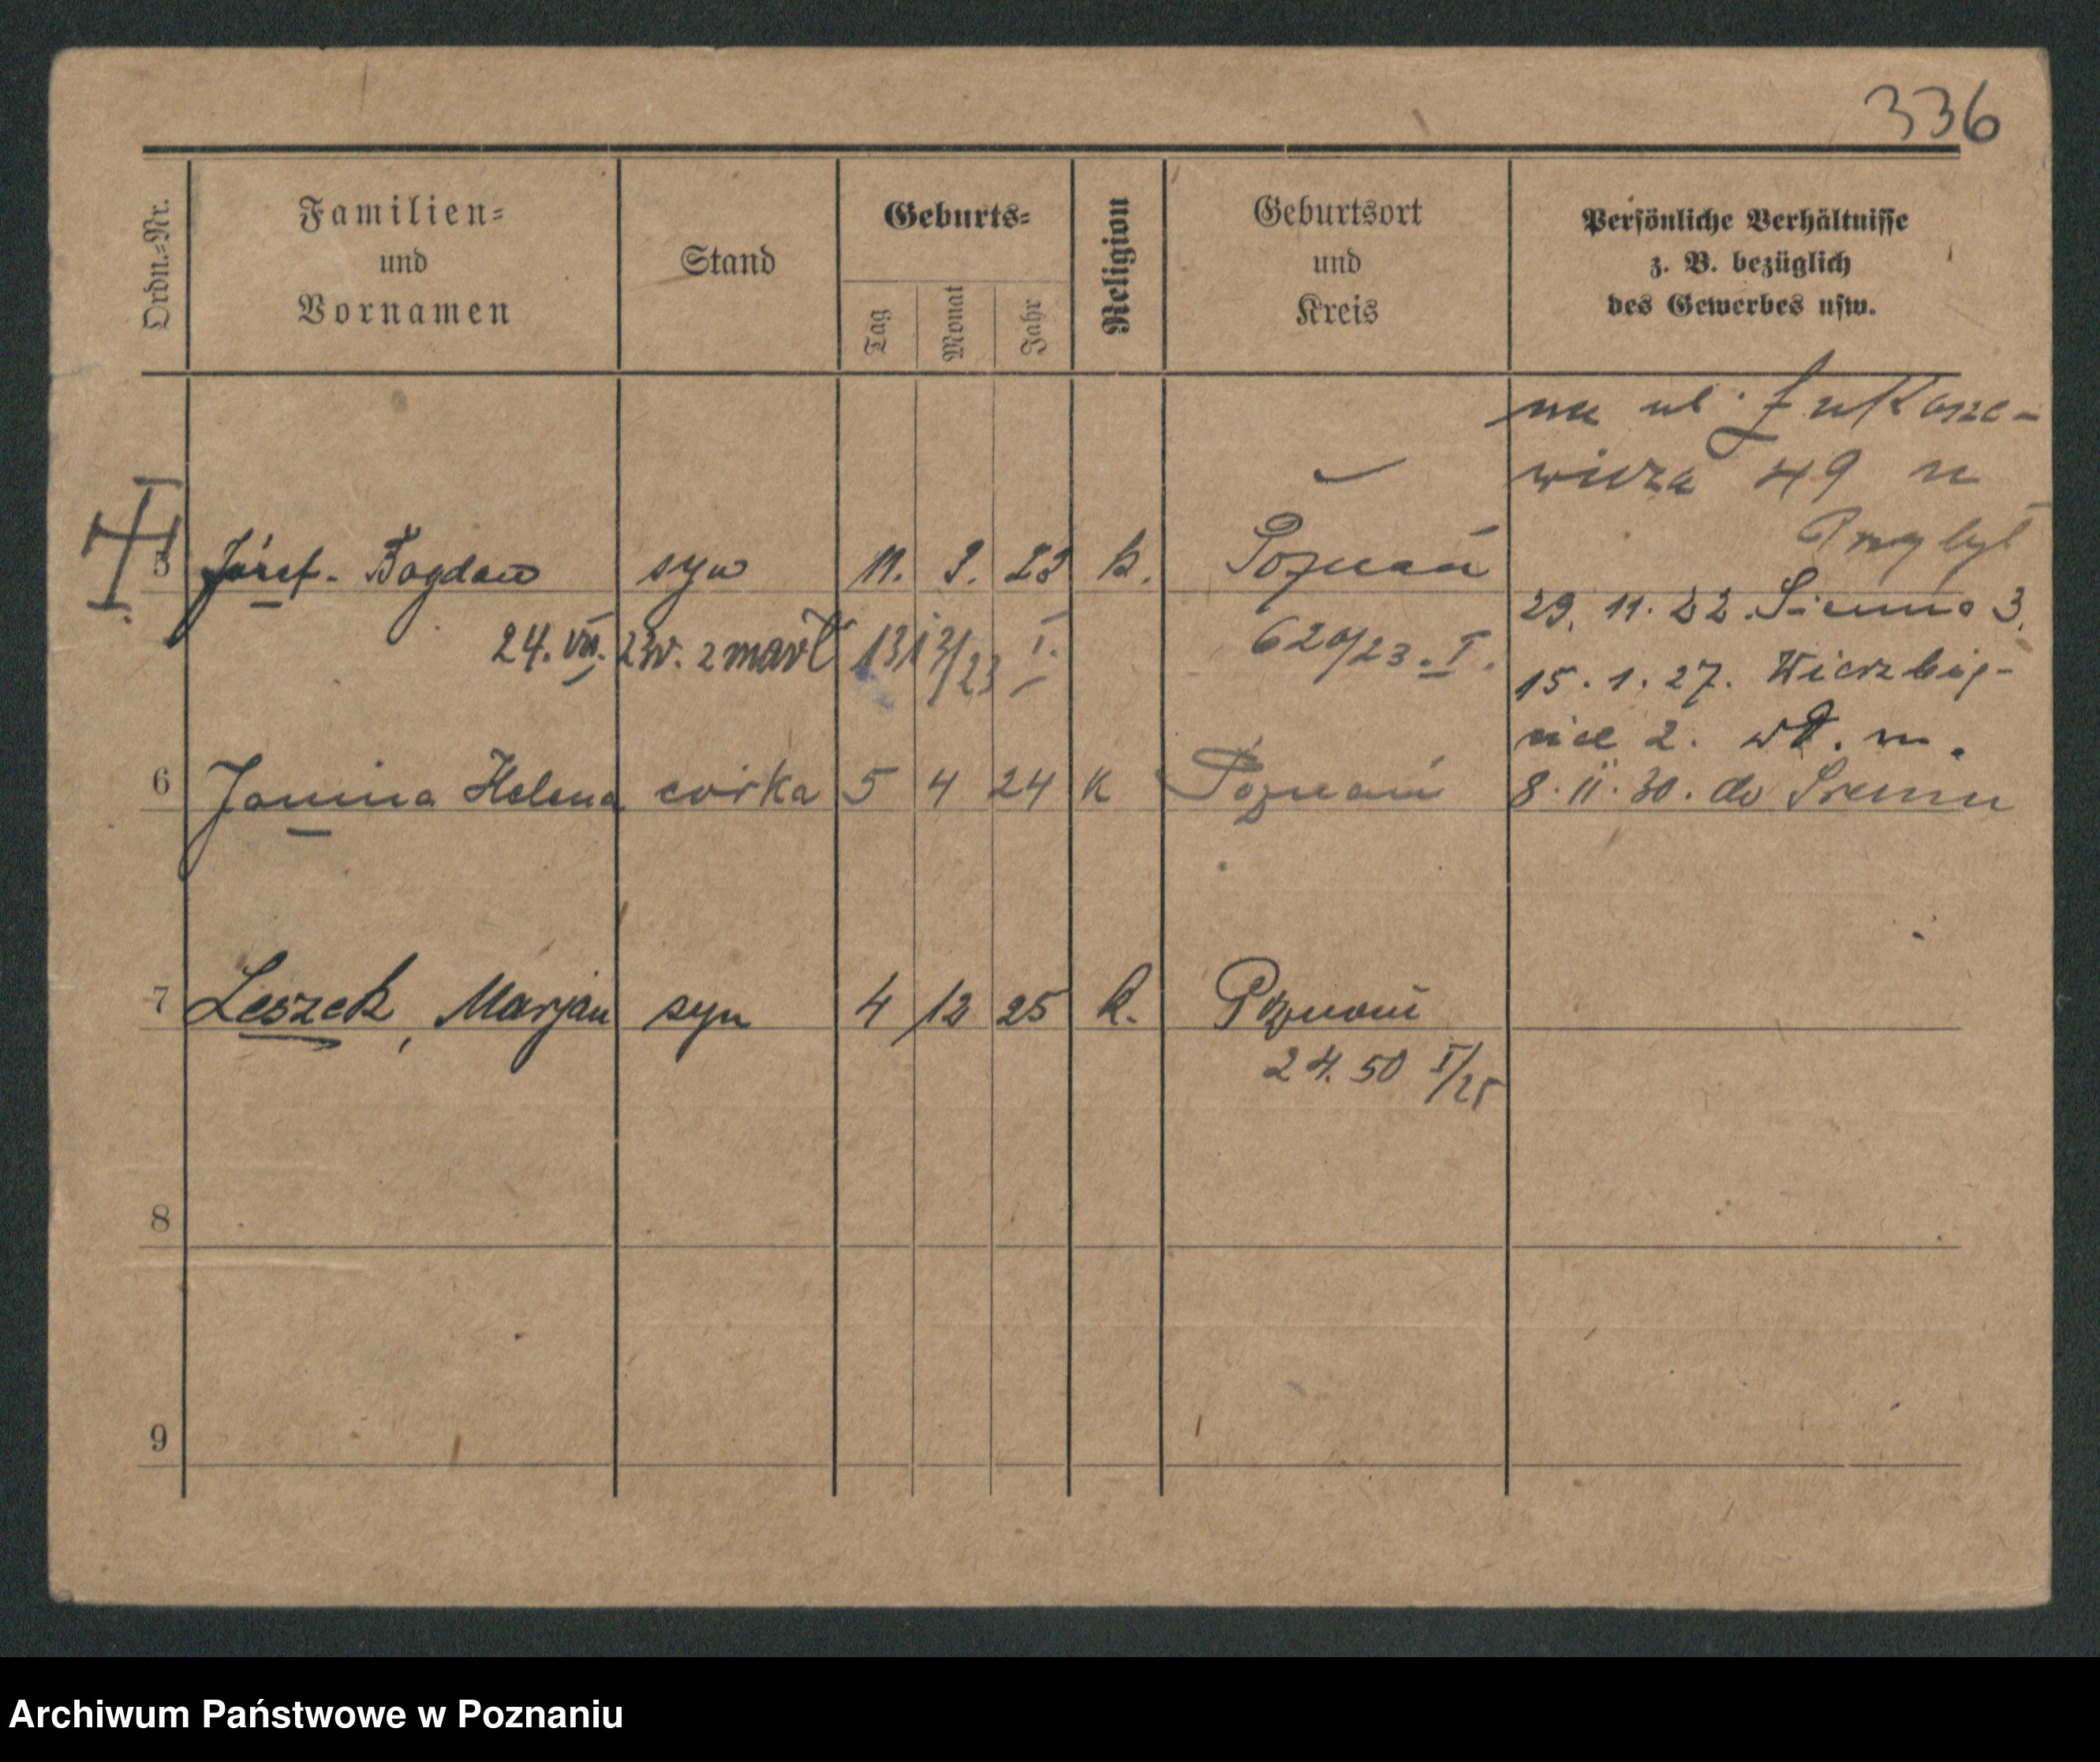 336
Ordn.=Nr.
Familien=
und
Vornamen
Stand
Geburts=
Tag
Monat
Jahr
Religion
Geburtsort
und
Kreis
Persönliche Verhältnisse
z. B. bezüglich
des Gewerbes usw.
na ul. Łukasze-
wicza 49 n
Przybył
5 Józef. Bogdan syn 11. 3. 23 k. Poznań
29. 11. 22. Sienna 3.
24. VII. 23r. zmarł 1313/23 I. 620/23. I.
15. 1. 27. Wierzbię-
cice 2. wł. m.
6 Janina Helena córka 5 4 24 k Poznań 8. II. 30. do Śremu
7 Leszek, Marjan syn 4 12 25 k. Poznań
2450 I/25
8
9
Archiwum Państwowe w Poznaniu